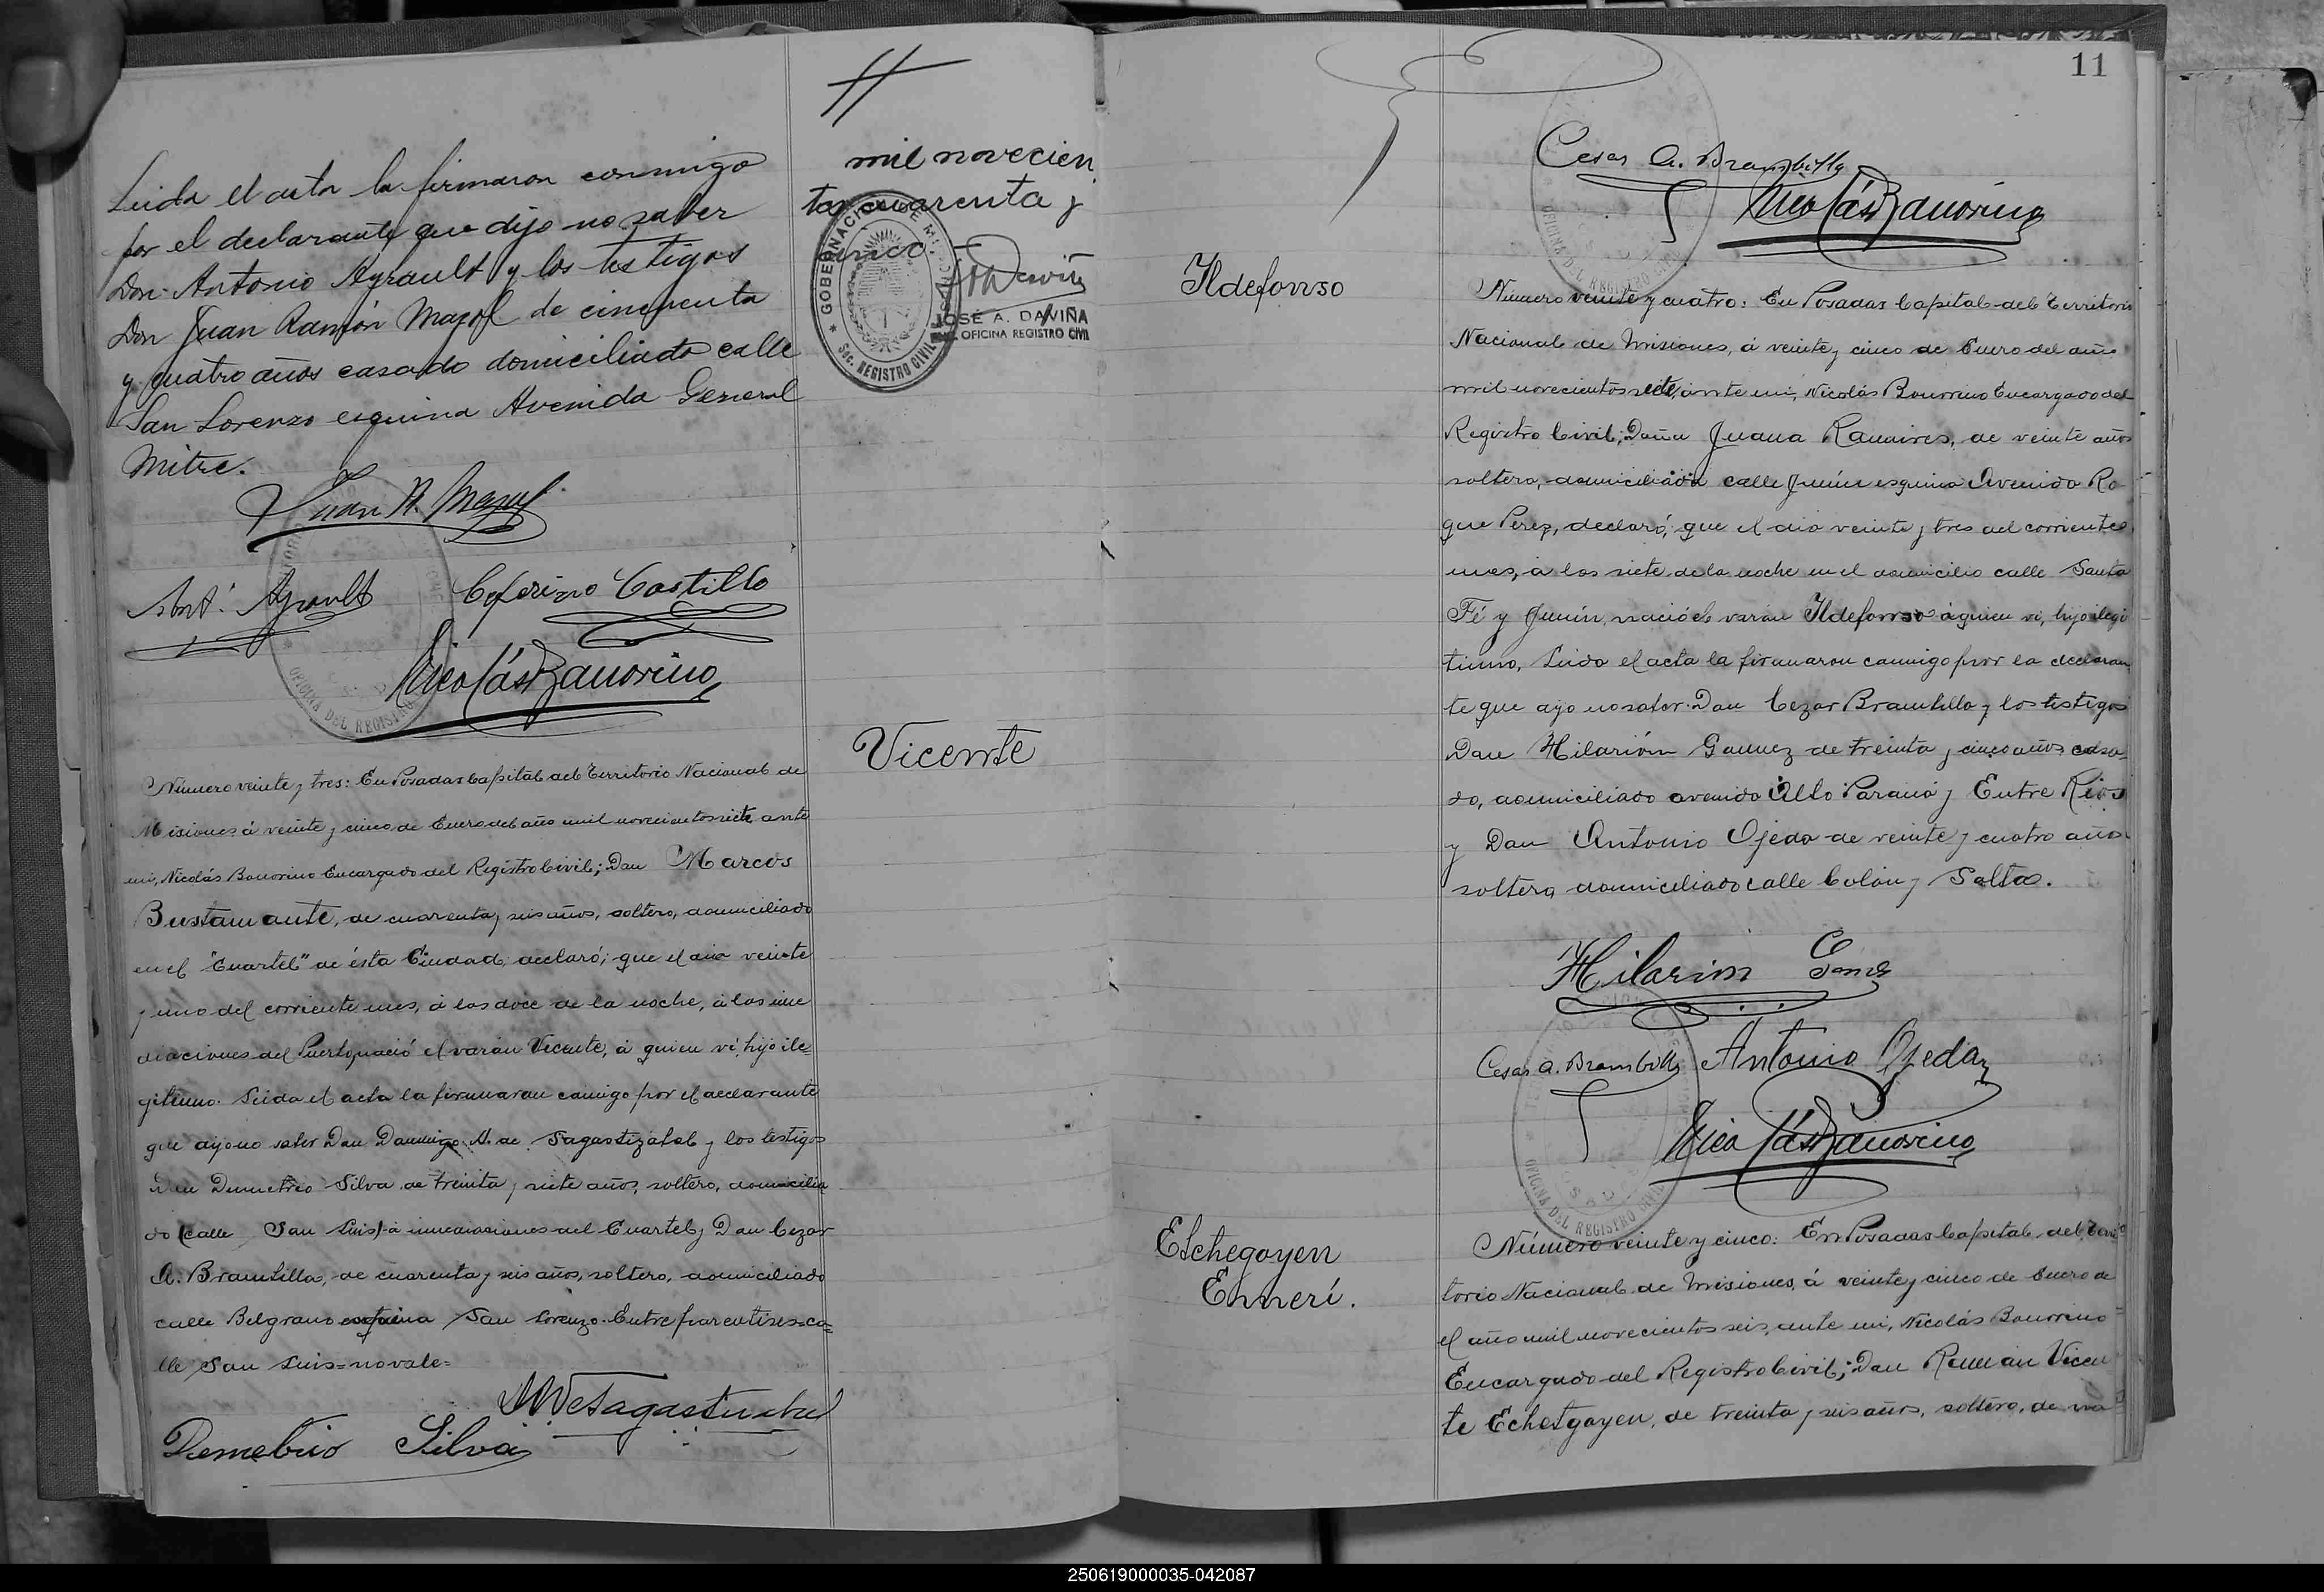 Leida el acta la firmaron conmigo
por el declarante que dijo no saber
Don Antonio Ayrault y los testigos
Don Juan Ramón Mazol de cincuenta
y cuatro años casado domiciliado calle
San Lorenzo esquina Avenida General
Mitre.
Juan R. Mazol
Ant. Ayrault Ceferino Castillo
Nicolás Bonorino
Número veinte y tres: En Posadas Capital del Territorio Nacional de
Misiones á veinte y cinco de Enero del año mil novecientos siete ante
mi, Nicolás Bonorino Encargado del Registro Civil; Don Marcos
Bustamante, de cuarenta y seis años, soltero, domiciliado
en el "Cuartel" de ésta Ciudad, declaró; que el dia veinte
y uno del corriente mes, á las doce de la noche, á las inme
diaciones del Puerto, nació el varón Vicente, á quien ví, hijo ile-
gitimo. Leida el acta la firmaron conmigo por el declarante
que dijo no saber Don Domingo A. de Sagastizabal y los testigos
Don Demetrio Silva de treinta y siete años, soltero, domicilia
do (calle San Luis) á inmediaciones del Cuartel y Don Cezar
A. Brambilla, de cuarenta y seis años, soltero, domiciliado
calle Belgrano esquina San Lorenzo. Entre parentises=ca=
lle San Luis=no vale=
Demetrio Silva
mil novecien
tos cuarenta y
GOBERNACION DE MISIONES
SEC. REGISTRO CIVIL
JOSÉ A. DAVIÑA
OFICINA REGISTRO CIVIL
Vicente
11
Cesar A. Brambilla
Nicolás Bonorino
Ildefonso
Número veinte y cuatro: En Posadas Capital del Territorio
Nacional de Misiones, á veinte y cinco de Enero del año
mil novecientos siete, ante mi, Nicolás Bonorino Encargado del
Registro Civil; Doña Juana Ramires, de veinte años
soltera, domiciliada calle Junín esquina Avenida Ro
que Perez, declaró; que el dia veinte y tres del corriente
mes, á las siete de la noche en el domicilio calle Santa
Fé y Junín, nació el varón Ildefonso á quien ví, hijo ilegi
timo, Leida el acta la firmaron conmigo por la declaran
te que dijo no saber Don Cezar Brambilla y los testigos
Don Hilarión Gomez de treinta y cinco años casa-
do, domiciliado avenida Alto Paraná y Entre Rios
y Don Antonio Ojeda de veinte y cuatro años
soltero, domiciliado calle Colón y Salta.
Hilarion Gomez
Cesar A. Brambilla Antonio Ojeda
Nicolás Bonorino
OFICINA DEL REGISTRO CIVIL
Etchegoyen
Enneri.
Número veinte y cinco: En Posadas Capital del Terri
torio Nacional de Misiones, á veinte y cinco de Enero de
el año mil novecientos seis, ante mi, Nicolás Bonorino
Encargado del Registro Civil; Don Román Vicen
te Echetgoyen, de treinta y seis años, soltero, de na
250619000035-042087